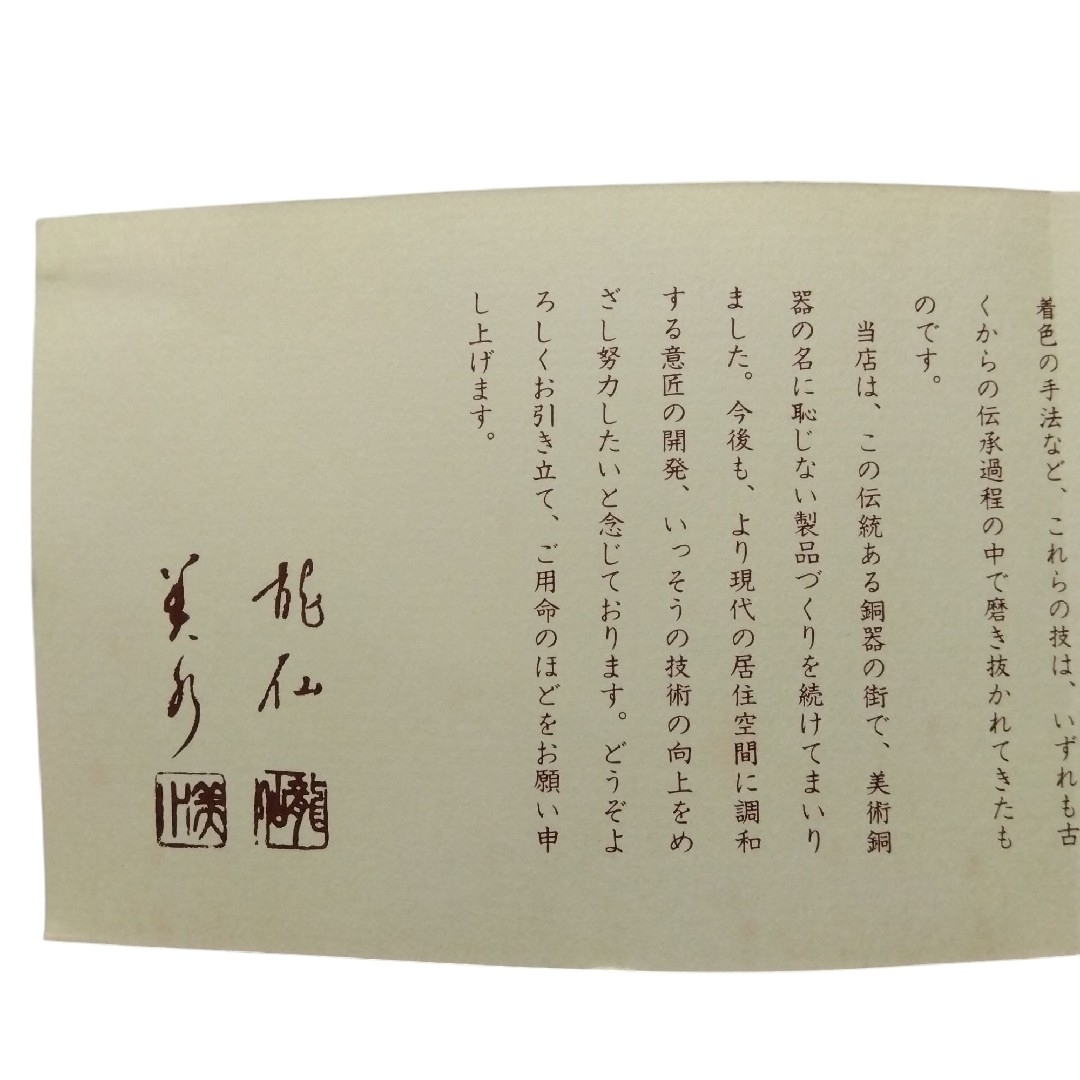 着色の手法など、これらの技は、いずれも古
くからの伝承過程の中で磨き抜かれてきたも
のです。
当店は、この伝統ある銅器の街で、美術銅
器の名に恥じない製品づくりを続けてまいり
ました。今後も、より現代の居住空間に調和
する意匠の開発、いっそうの技術の向上をめ
ざし努力したいと念じております。どうぞよ
ろしくお引き立て、ご用命のほどをお願い申
し上げます。
龍仙
美